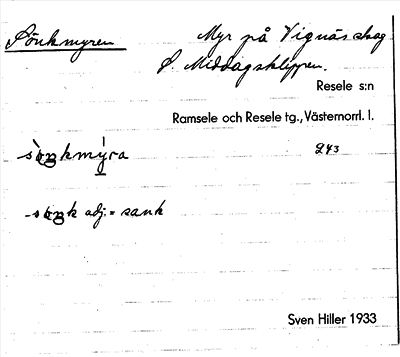 Sönkmyren Myr på Vignäs skog
Ö. Middagsklippen.
Resele s:n
Ramsele och Resele tg., Västernorrl. l.
sòŋkmýra 243
-söŋk adj. = sank
Sven Hiller 1933